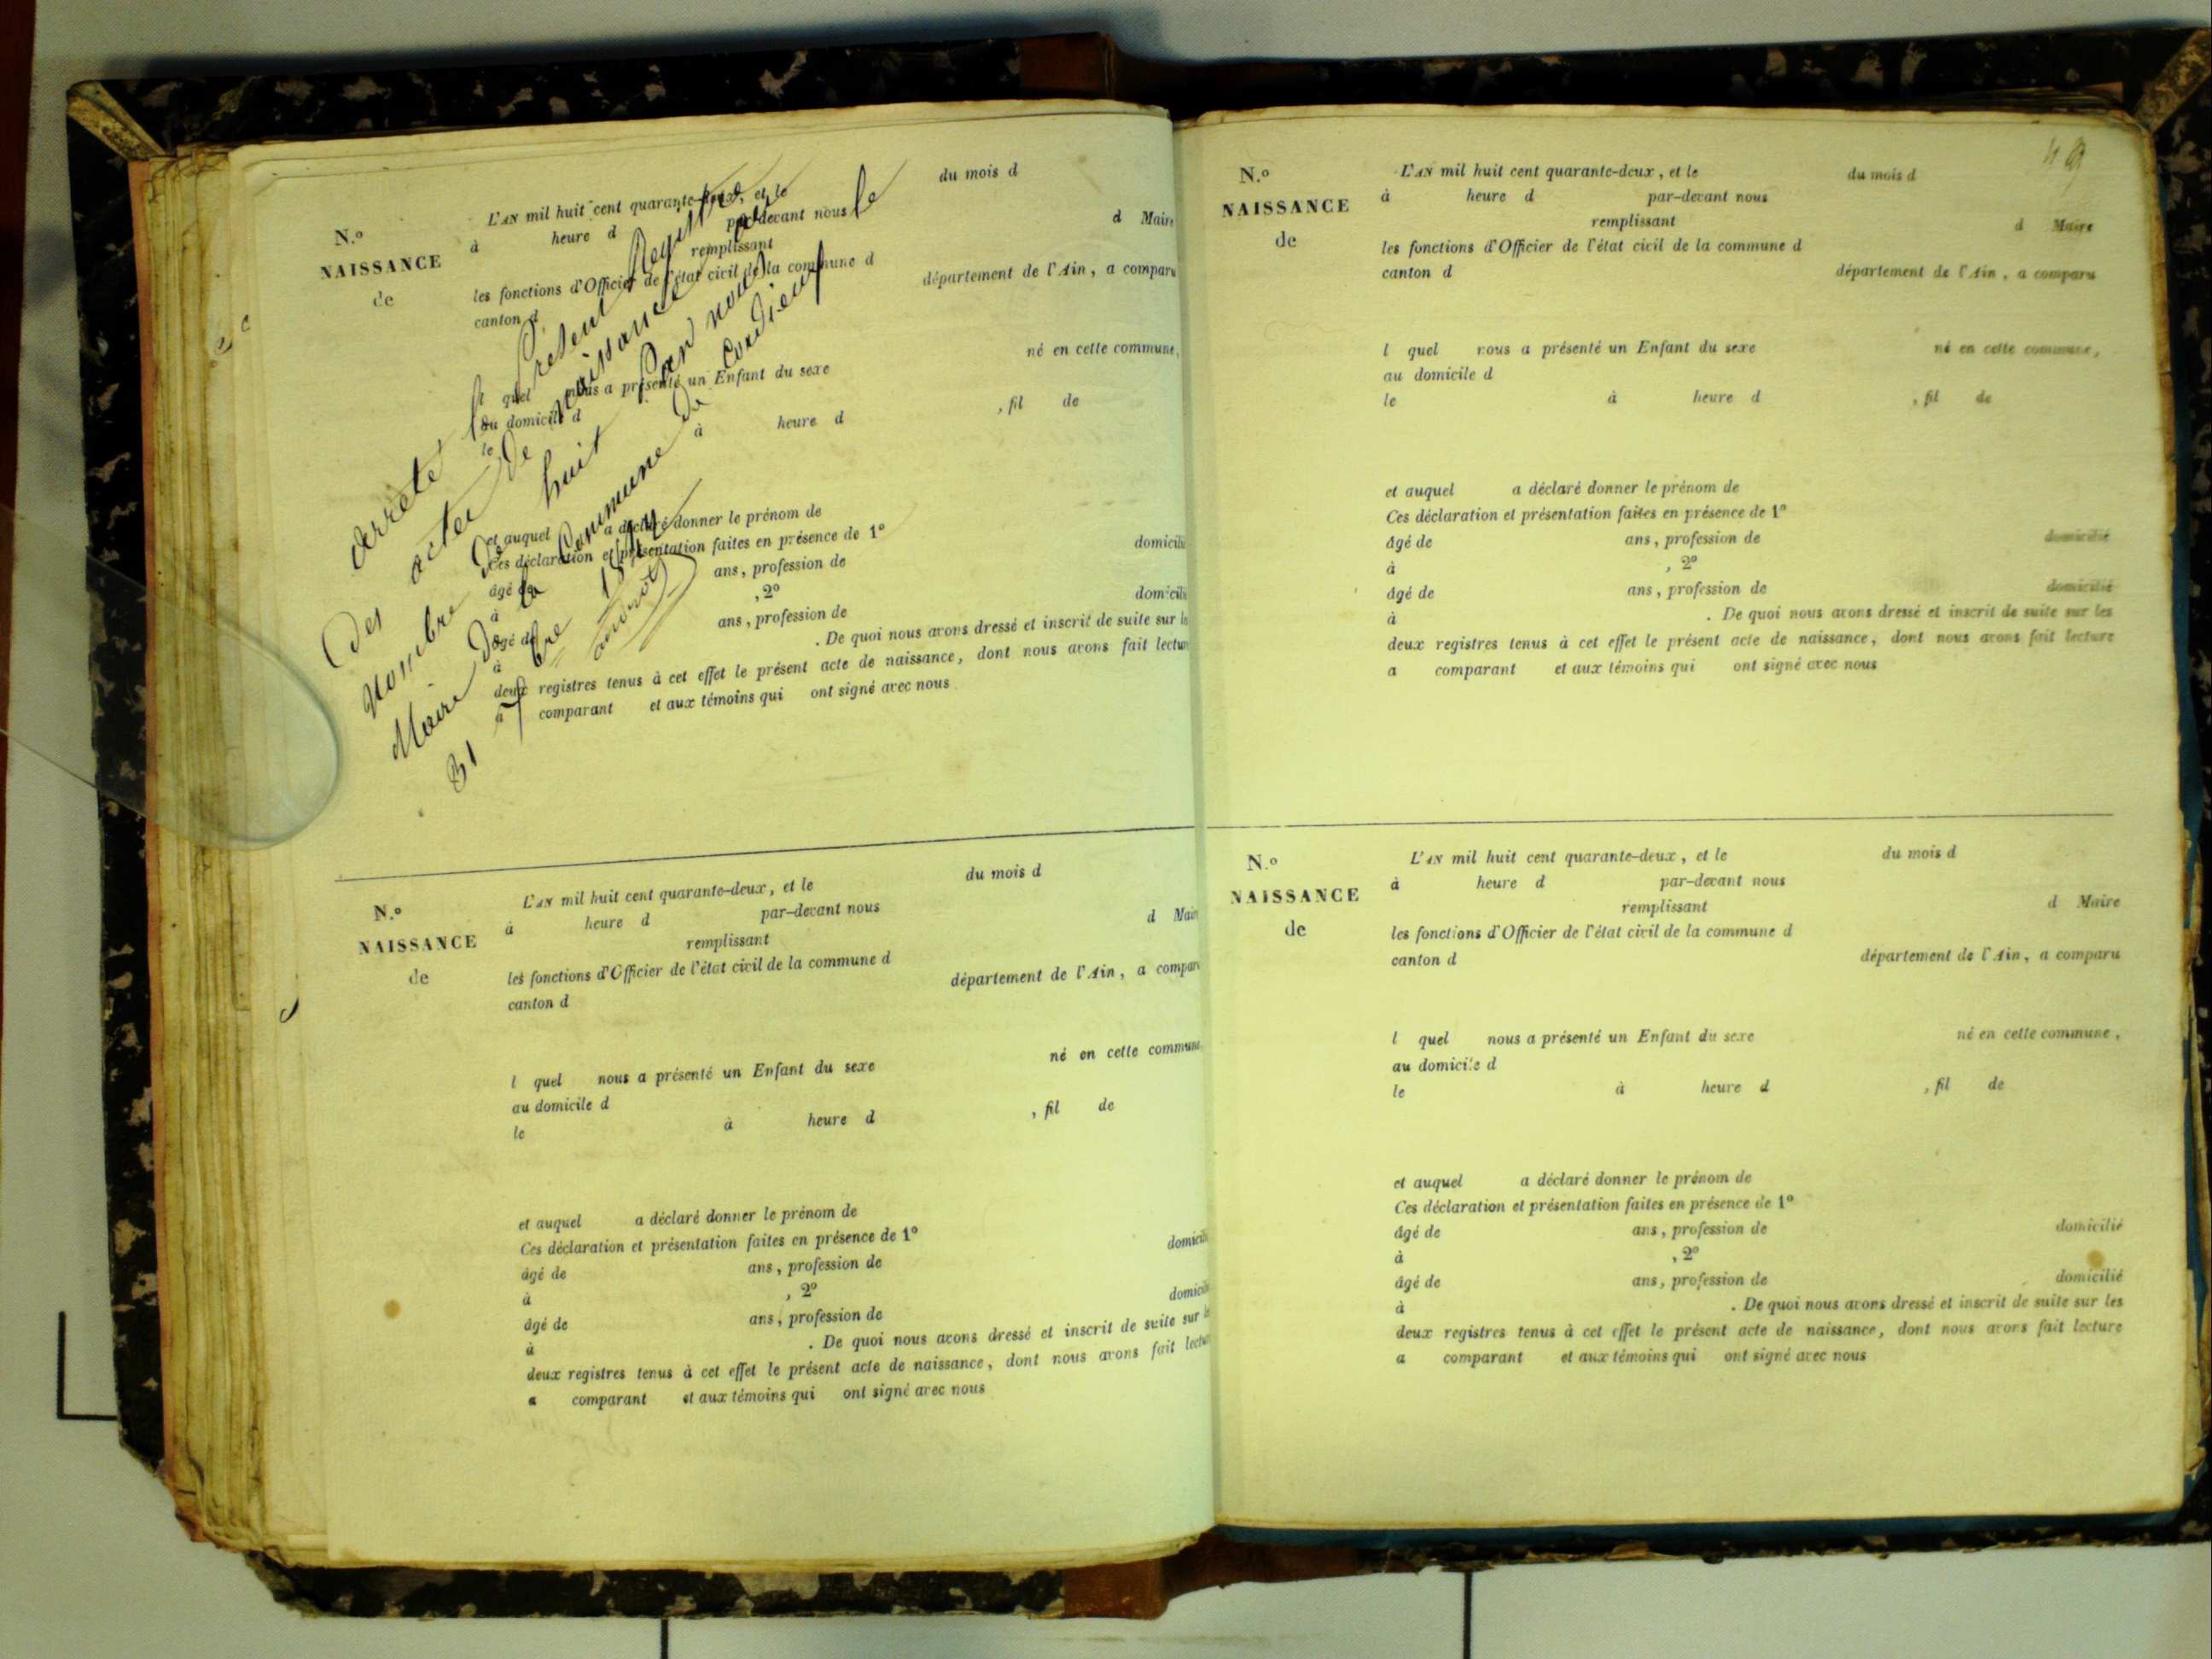 N.º
NAISSANCE
de
L'AN mil huit cent quarante-deux, et le du mois d
à heure d par-devant nous
remplissant d Maire
les fonctions d'Officier de l'état civil de la commune d
canton d département de l'Ain, a comparu
l quel nous a présenté un Enfant du sexe né en cette commune,
au domicile d
le à heure d , fil de
et auquel a déclaré donner le prénom de
Ces déclaration et présentation faites en présence de 1º
âgé de ans, profession de domicilié
à , 2º
âgé de ans, profession de domicilié
à . De quoi nous avons dressé et inscrit de suite sur le
deux registres tenus à cet effet le présent acte de naissance, dont nous avons fait lectur
a comparant et aux témoins qui ont signé avec nous
arrêté le présent Registre
des actes de naissance au
nombre de huit par nous le
Maire de la Commune de Cordieux
le 31 bre 1842
N.º
NAISSANCE
de
L'AN mil huit cent quarante-deux, et le du mois d
à heure d par-devant nous
remplissant d Mair
les fonctions d'Officier de l'état civil de la commune d
canton d département de l'Ain, a compar
l quel nous a présenté un Enfant du sexe né en cette commune
au domicile d
le à heure d , fil de
et auquel a déclaré donner le prénom de
Ces déclaration et présentation faites en présence de 1º
âgé de ans, profession de domicili
à , 2º
âgé de ans, profession de domicili
à . De quoi nous avons dressé et inscrit de suite sur le
deux registres tenus à cet effet le présent acte de naissance, dont nous avons fait lectur
a comparant et aux témoins qui ont signé avec nous
N.º
NAISSANCE
de
L'AN mil huit cent quarante-deux, et le du mois d
à heure d par-devant nous
remplissant d Maire
les fonctions d'Officier de l'état civil de la commune d
canton d département de l'Ain, a comparu
l quel nous a présenté un Enfant du sexe né en cette commune,
au domicile d
le à heure d , fil de
et auquel a déclaré donner le prénom de
Ces déclaration et présentation faites en présence de 1º
âgé de ans, profession de domicilié
à , 2º
âgé de ans, profession de domicilié
à . De quoi nous avons dressé et inscrit de suite sur les
deux registres tenus à cet effet le présent acte de naissance, dont nous avons fait lecture
a comparant et aux témoins qui ont signé avec nous
N.º
NAISSANCE
de
L'AN mil huit cent quarante-deux, et le du mois d
à heure d par-devant nous
remplissant d Maire
les fonctions d'Officier de l'état civil de la commune d
canton d département de l'Ain, a comparu
l quel nous a présenté un Enfant du sexe né en cette commune,
au domicile d
le à heure d , fil de
et auquel a déclaré donner le prénom de
Ces déclaration et présentation faites en présence de 1º
âgé de ans, profession de domicilié
à , 2º
âgé de ans, profession de domicilié
à . De quoi nous avons dressé et inscrit de suite sur les
deux registres tenus à cet effet le présent acte de naissance, dont nous avons fait lecture
a comparant et aux témoins qui ont signé avec nous